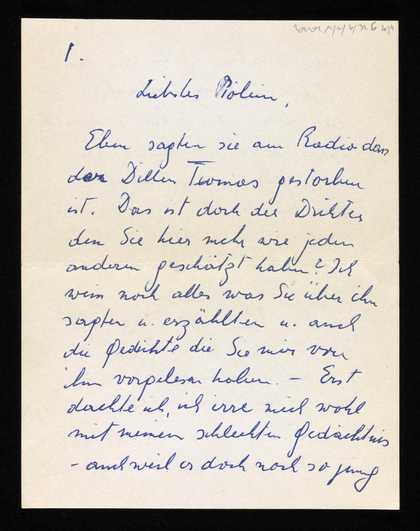 1.
Liebstes
Eben sagten sie am Radio dass
der Dillen Tiomas gestorben
ist. Das ist doch der Dichter
den Sie hier mehr wie jeden
anderen geschätzt haben? Ich
weiss noch alles was Sie über ihn
sagten u. erzählten u. auch
die Gedichte die Sie mir von
ihm vorgelesen haben. – Erst
dachte ich, ich irre mich wohl
mit meinem schlechten Gedächtnis
– auch weil er doch noch so jung